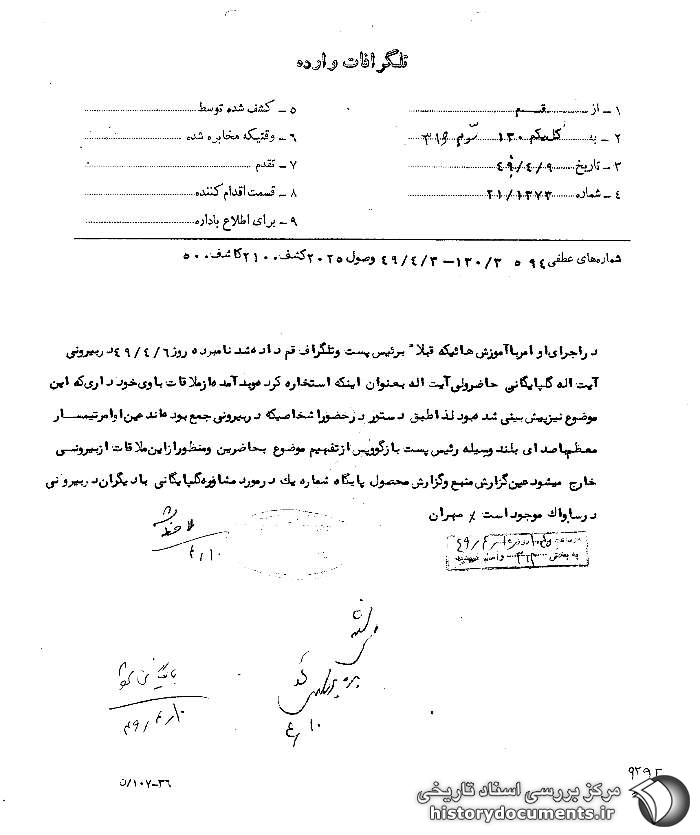 تلگرافات وارده
۱ – از قم
۲ – به کلیکم ۱۳۰ سوم ۳۱۶
۳ – تاریخ ۴۹/۴/۹
۴ – شماره ۲۱/۱۳۷۳
۵ – کشف شده توسط
۶ – وقتیکه مخابره شده
۷ – تقدم
۸ – قسمت اقدام کننده
۹ – برای اطلاع باداره
شماره‌های عطفی ۵۹۴ ۱۳۰/۳ – ۴۹/۴/۳ وصول ۲۰۲۵ کشف ۲۱۰۰ کاشف ۵۰۰
در اجرای اوامر با آموزش هائیکه قبلا" برئیس پست وتلگراف قم داده شد نامبرده روز ۴۹/۴/۶ در بیرونی
آیت اله گلپایگانی حاضر ولی آیت اله بعنوان اینکه استخاره کرده و بد آمده از ملاقات باوی خودداری که این
موضوع نیز پیش بینی شده بود لذا طبق دستور در حضور اشخاصیکه در بیرونی جمع بوده‌اند عین اوامر تیمسار
معظم با صدای بلند وسیله رئیس پست بازگو و پس از تفهیم موضوع بحاضرین ومنظور از این ملاقات از بیرونی
خارج میشود عین گزارش منبع وگزارش محصول پایگاه شماره یك در مورد مشاوره گلپایگانی با دیگران در بیرونی
در ساواك موجود است٪ مهران
ملاحظه شد
۴/۱۰
۴۹/۴/۱۰
به بخش ۳۱۲ واصل گردید
۴/۱۰
بایگانی شود
۴۹/۴/۱۰
ن/۱۰۷-۳۶
مرکز بررسی اسناد تاریخی
historydocuments.ir